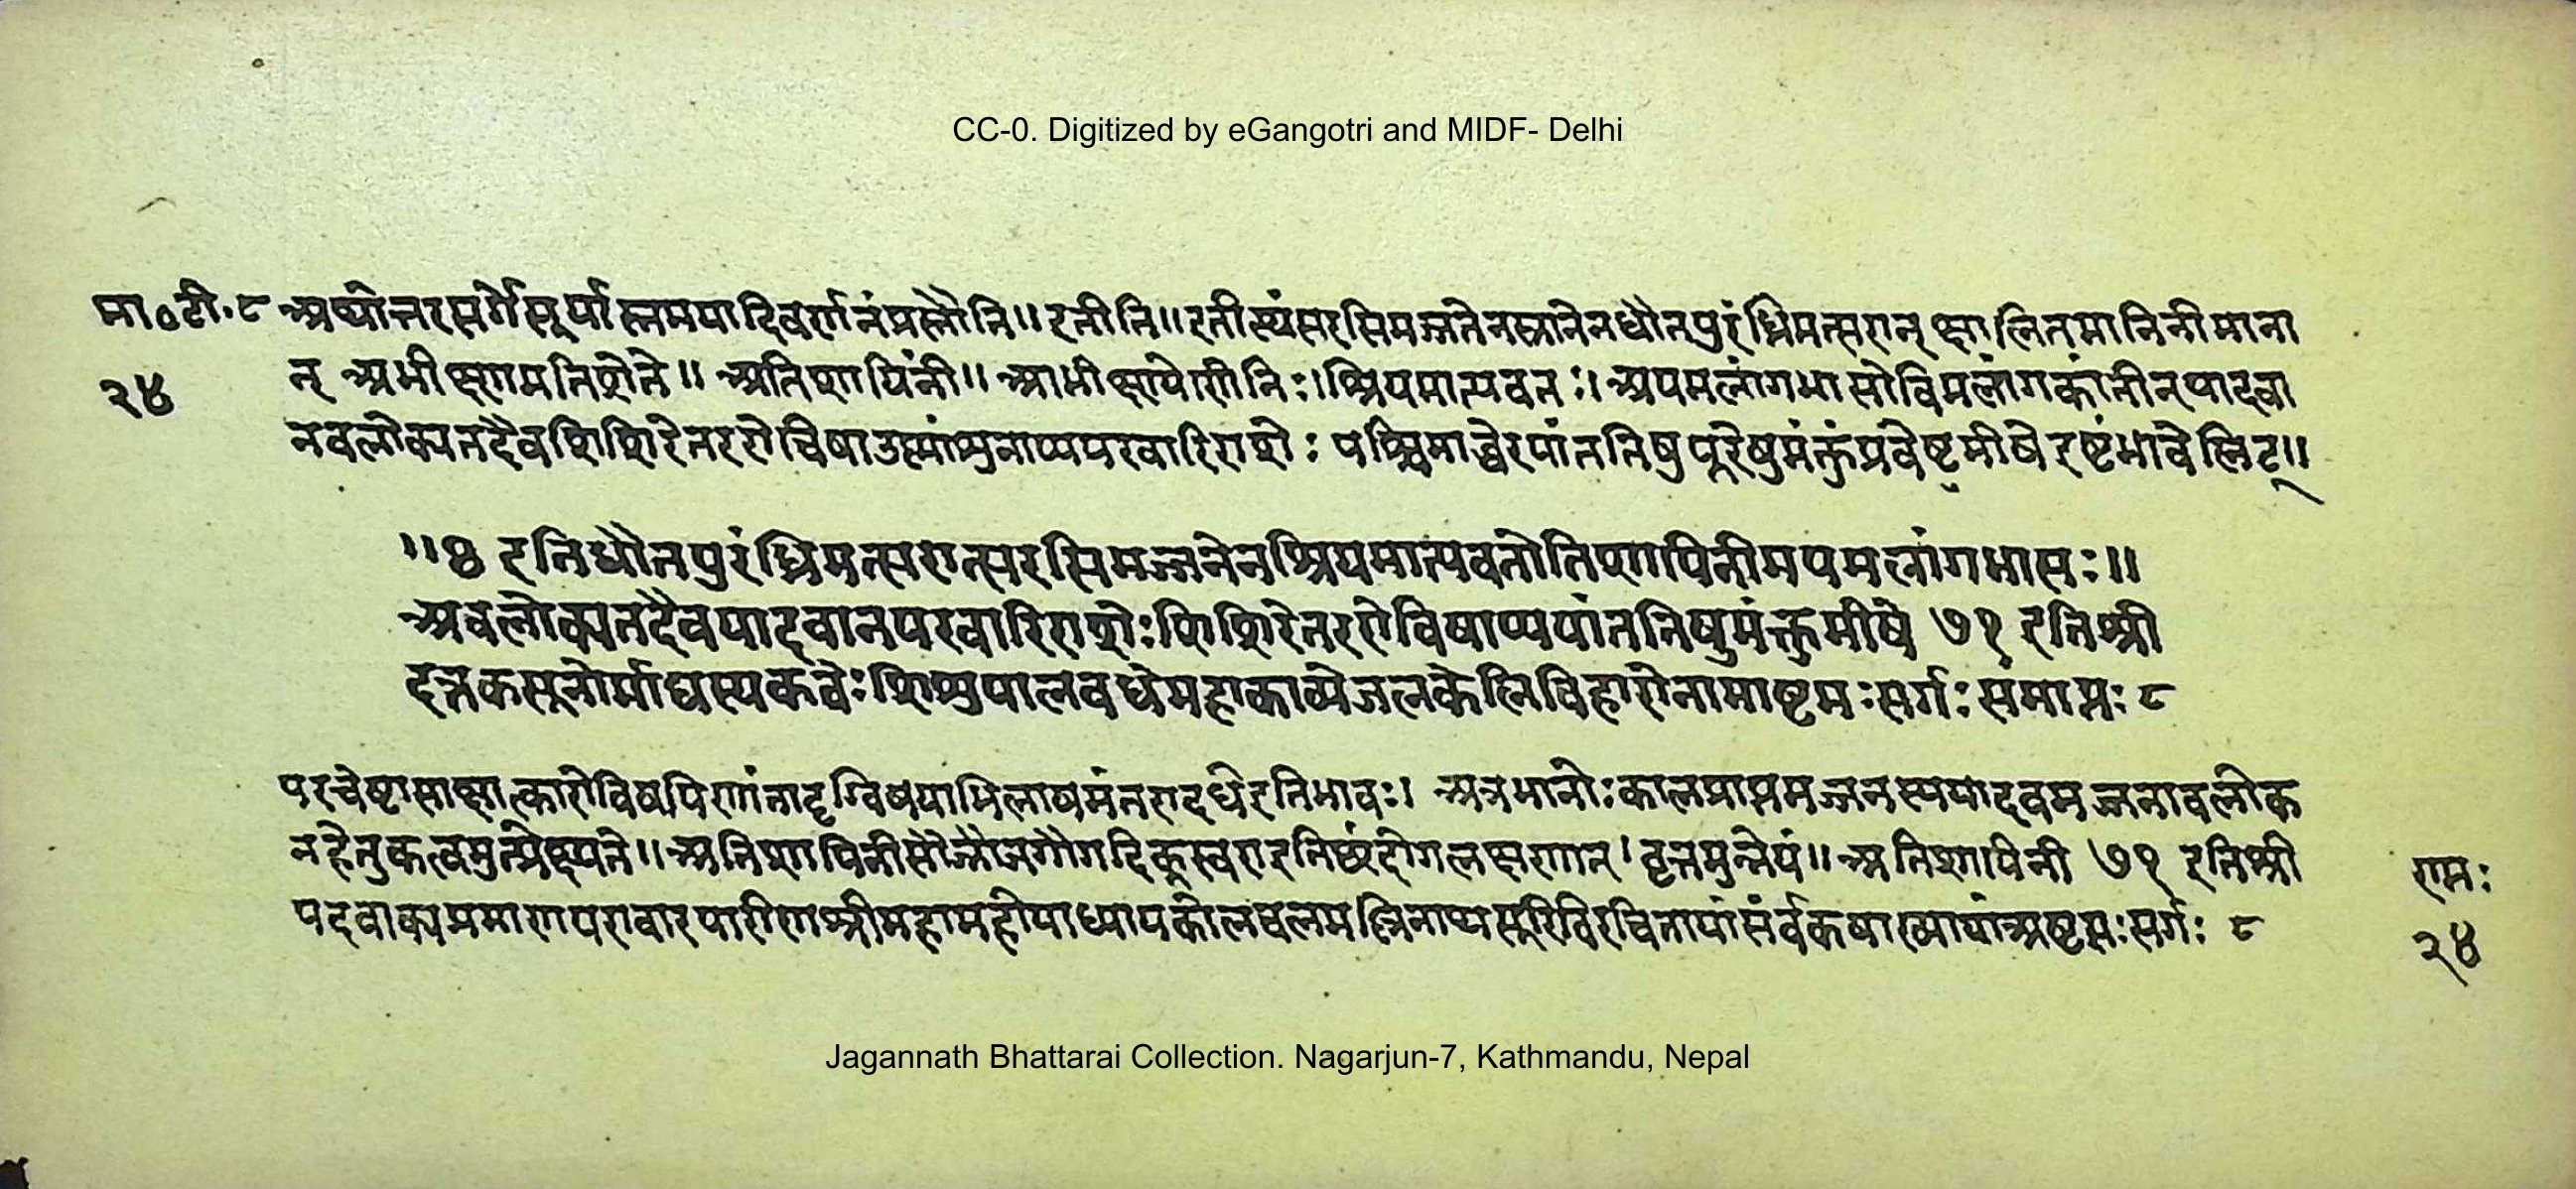 CC-0. Digitized by eGangotri and MIDF- Delhi
मा०टी.८ अथोत्तरसर्गेसूर्यास्तमयादिवर्णनंप्रस्तौति॥इतीति॥इतीत्थंसरसिमज्जनेनस्नानेनधौतपुरंध्रिमत्सरान् क्षालितमानिनीमाना
२४ न् अभीक्ष्णमतिशेते॥ अतिशायिनी॥ आभीक्ष्ण्येणिनिः। श्रियमाप्लवतः। अपमलांगभासोविमलांगकांतीन्यादवा
नवलोक्यतदैवशिशिरेतररोचिषाउष्णांशुनाप्यपरवारिराशेः पश्चिमाब्धेरपांततिषुपूरेषुमंक्तुंप्रवेष्टुमीषे इष्टंभावेलिट्॥
॥७ इतिधौतपुरंध्रिमत्सरान्सरसिमज्जनेनश्रियमाप्लवतोतिशायिनीमपमलांगभासः॥
अवलोक्यतदैवयादवानपरवारिराशेःशिशिरेतररोचिषाप्यपांततिषुमंक्तुमीषे ७१ इतिश्री
दत्तकसूनोर्माघस्यकवेःशिशुपालवधेमहाकाव्येजलकेलिविहारोनामाष्टमःसर्गःसमाप्तः ८
परचेष्टासाक्षात्कारोविषयिणांतादृग्विषयाभिलाषमंतरादधेइतिभावः। अत्रभानोःकालप्राप्तमज्जनस्ययादवमज्जनावलोक
नहेतुकत्वमुत्प्रेक्ष्यते॥अतिशायिनीसौज्ञौजगौगदिक्स्वराइतिछंदोगलक्षणात्।वृत्तमुन्नेयं॥अतिशायिनी ७१ इतिश्री
रामः
पदवाक्यप्रमाणपरावारपारीणश्रीमहामहोपाध्यापकोलचलमल्लिनाथसूरिविरचितायांसंर्वकषाख्यायांअष्टमःसर्गः ८
२४
Jagannath Bhattarai Collection. Nagarjun-7, Kathmandu, Nepal